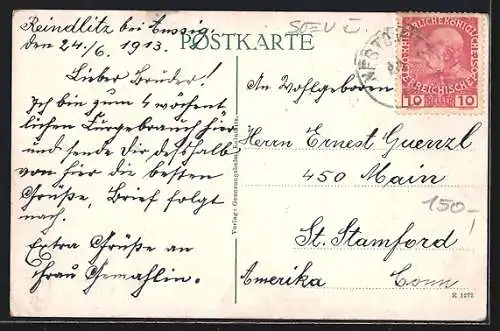 Reindlitz bei Aussig.
den 24./6. 1913.
POSTKARTE
Lieber Bruder!
Ich bin zum 4 wöchent
lichen Curgebrauch hier
und sende Dir desshalb
von hier die besten
Grüße, Brief folgt
nach.
Extra Grüße an
Frau Gemahlin.
An Wohlgeboren
Herrn Ernest Guenzl
450 Main
St. Stamford
Amerika Conn
150.-
NESTO
10 HELLER 10
K 1272